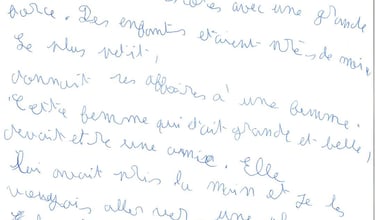 avec une grande
force. Des enfants etaient près de moi.
Le plus petit,
donnait ses affaires à une femme.
Cette femme qui était grande et belle,
devait etre une amie. Elle
lui avait pris la main et Je
voudrais aller une